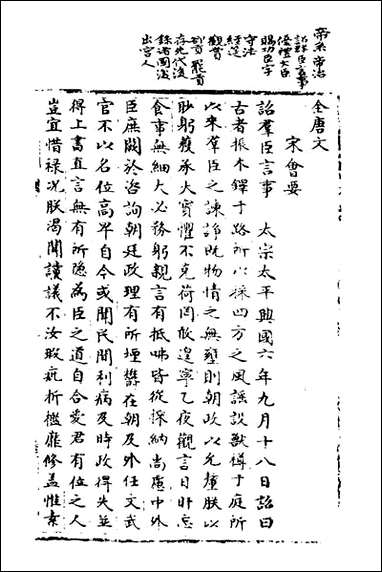 帝系 帝治
詔羣臣言事
優禮大臣
賜功臣字
守法
經筵
觀賞
却貢 罷貢
存先代後
錄諸國後
出宮人
全唐文
宋會要
詔羣臣言事 太宗太平興國六年九月十八日詔曰
古者振木鐸于路所以採四方之風謡設獸樽于庭所
以來羣臣之諫諍既物情之無壅則朝政以允釐朕以
眇躬獲承大寶懼不克荷罔敢遑寧乙夜觀書日旰忘
食事無細大必務躬親言有抵啎皆從採納尚慮中外
臣庶闕於咨詢朝廷政理有所堙鬱在朝及外任文武
官不以名位高卑自今或聞民間利病及時政得失並
得上書直言無有所隱為臣之道自合愛君有位之人
豈宜惜祿况朕渴聞讜議不汝瑕疵折檻靡修蓋惟素